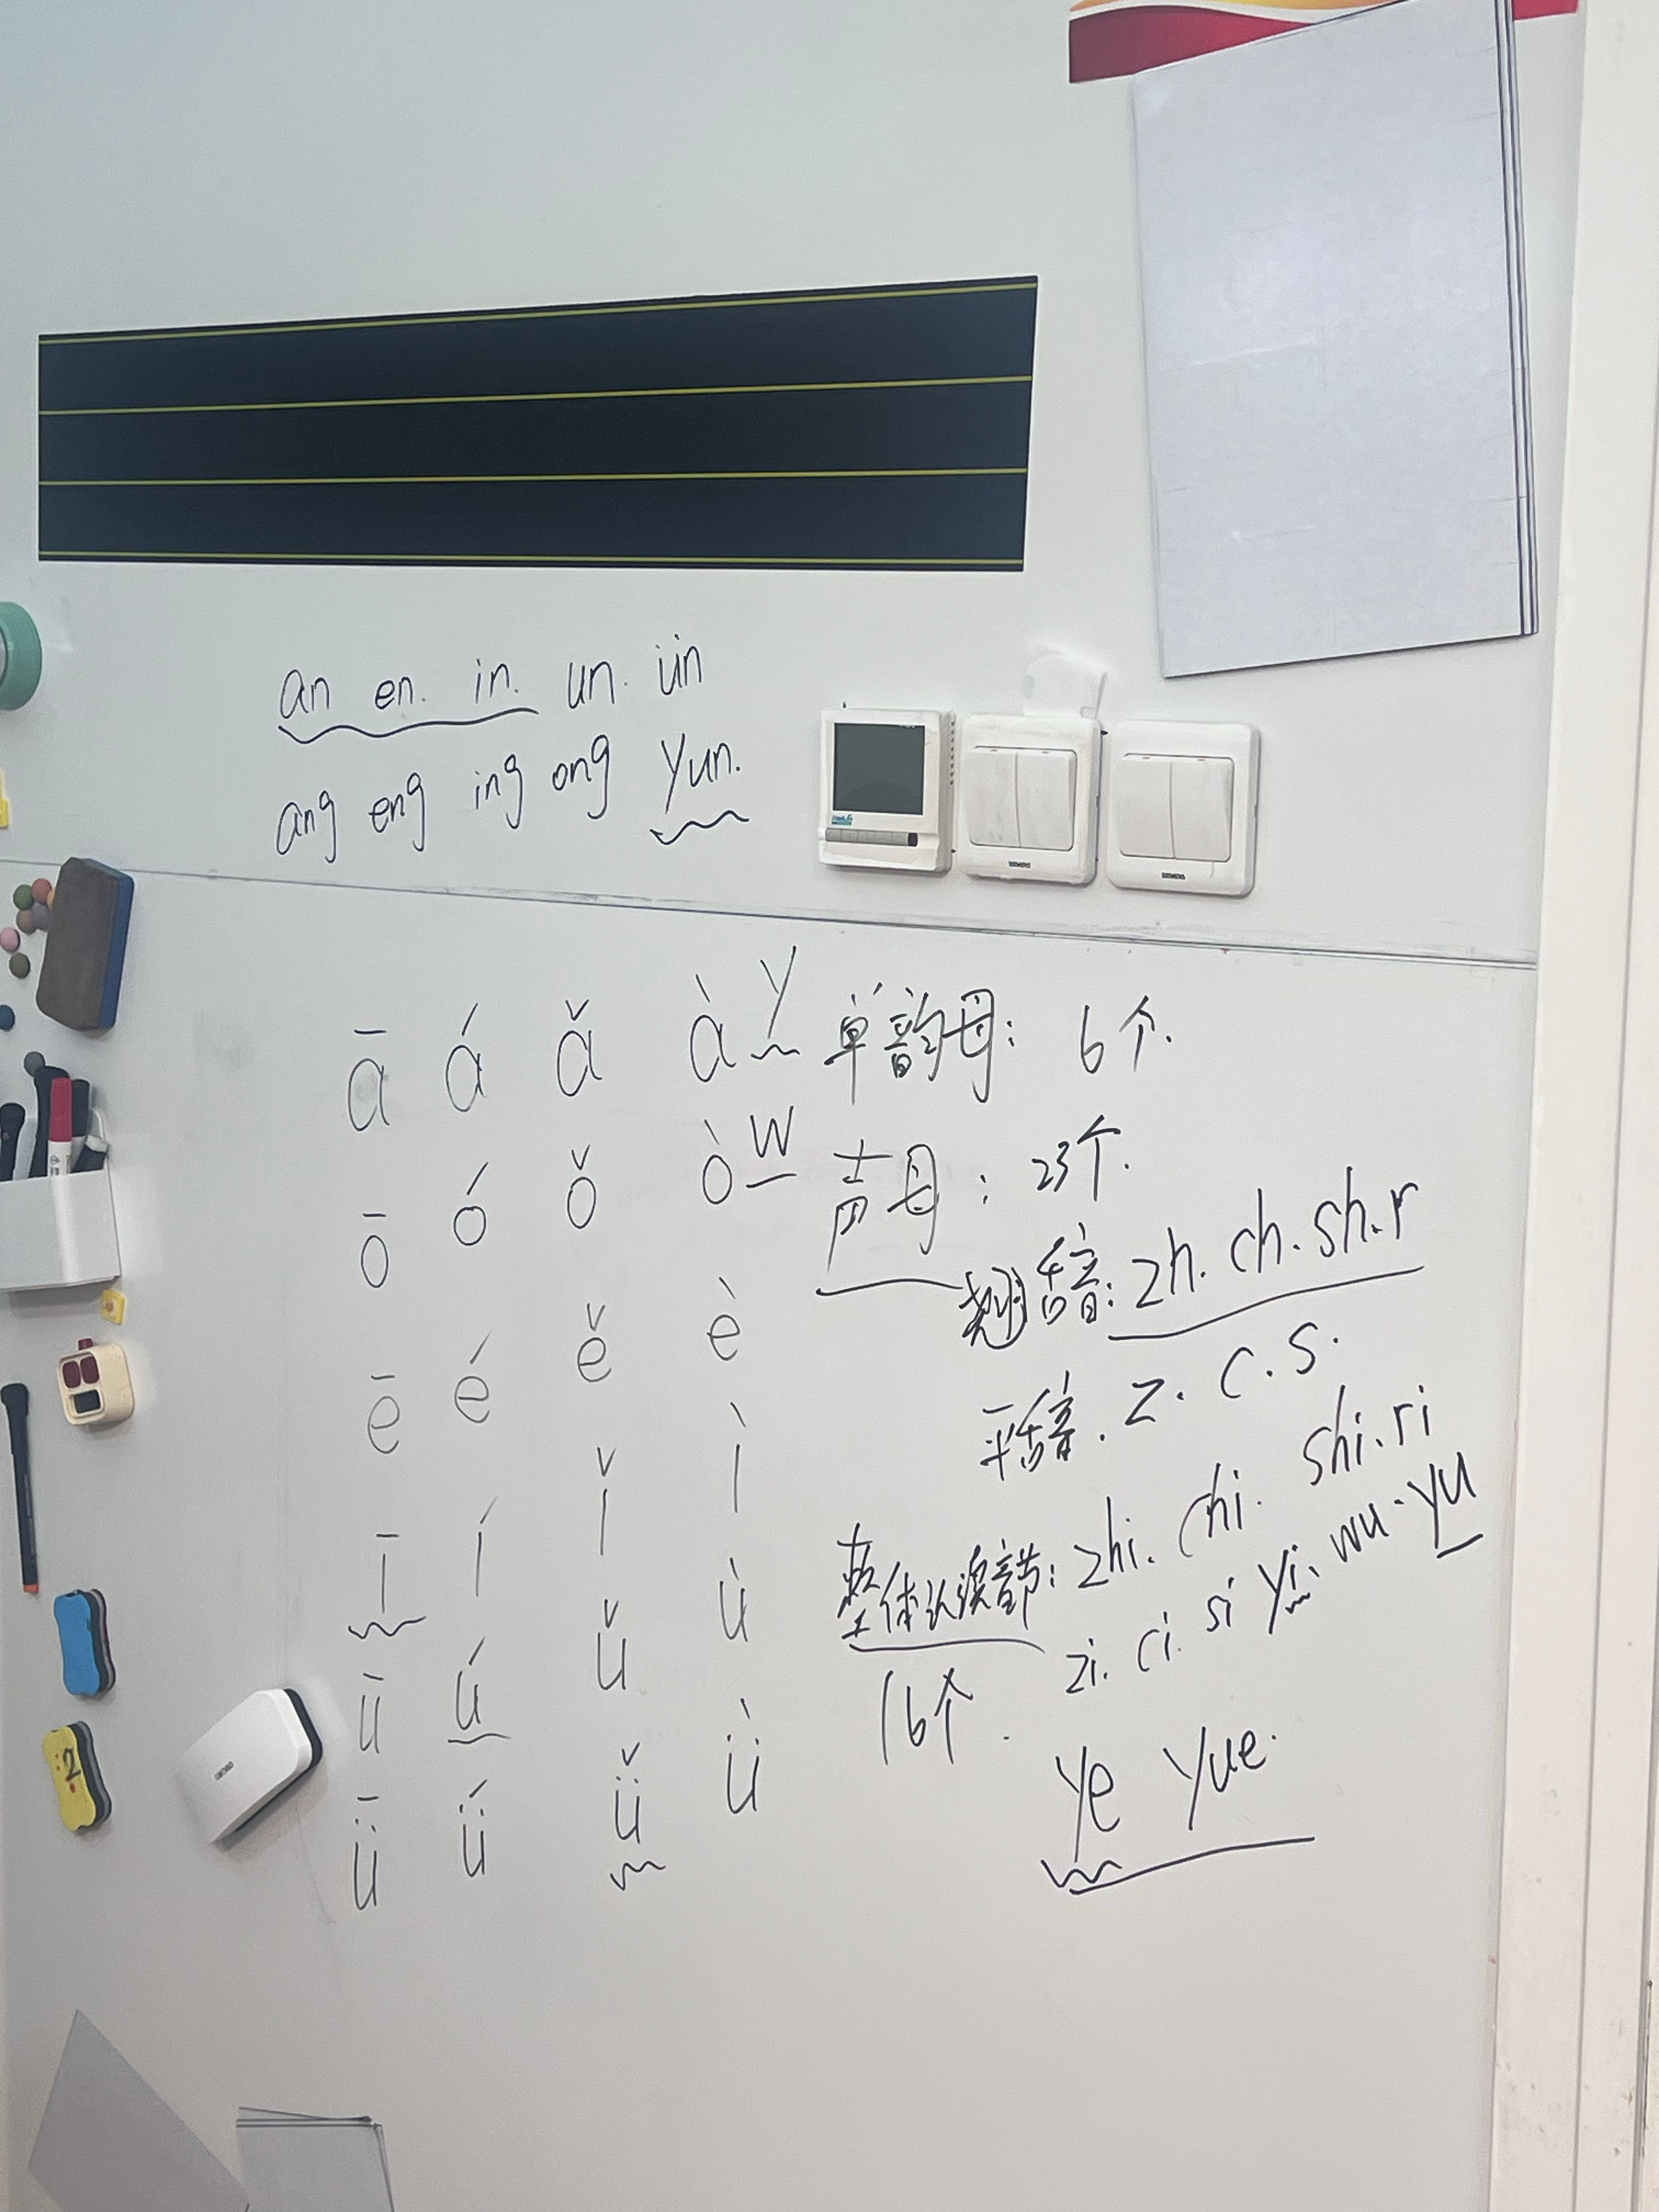 an en. in. un. ün
ang eng ing ong yun.
SIEMENS
SIEMENS
ā á ǎ à y
ō ó ǒ ò w
ē é ě è
ī í ǐ ì
ū ú ǔ ù
ǖ ǘ ǚ ǜ
单韵母: 6个.
声母: 23个.
翘舌音: zh. ch. sh. r
平舌音. z. c. s.
整体认读音节: zhi. chi. shi. ri
zi. ci. si yi. wu. yu
16个.
ye yue.
2